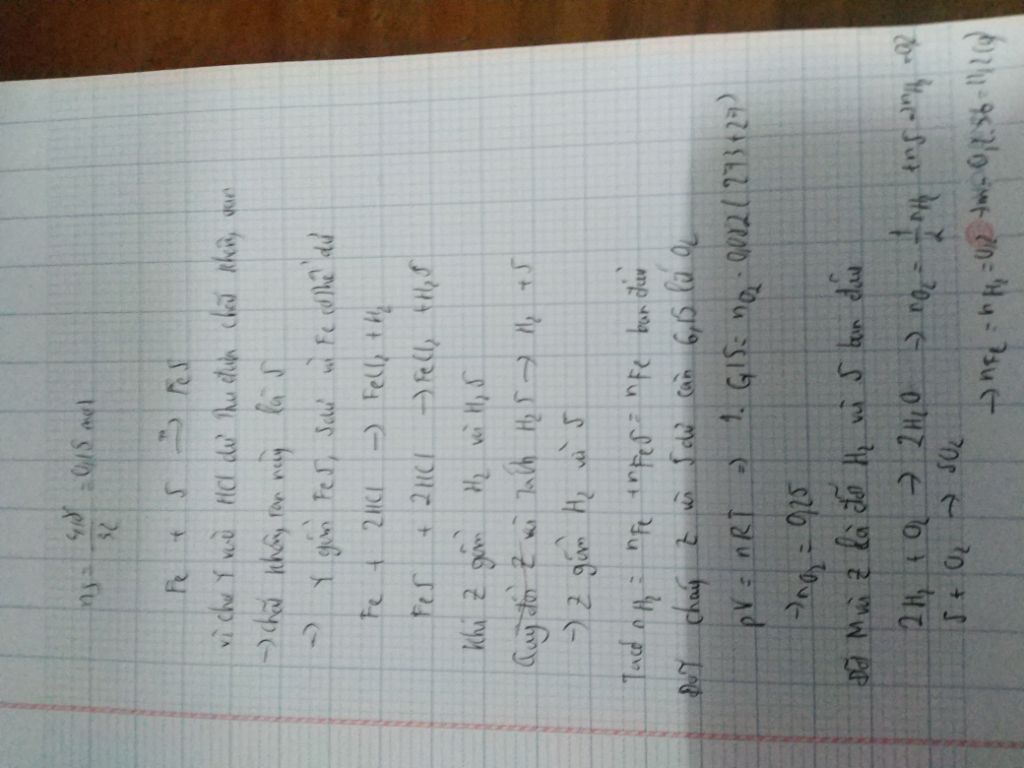 nS = 4,8/32 = 0,15 mol
Fe + S →(t°) FeS
vì cho Y vào HCl dư thu được chất rắn, 
→ chất không tan này là S
→ Y gồm FeS, S dư và Fe có thể dư
Fe + 2HCl → FeCl2 + H2
FeS + 2HCl → FeCl2 + H2S
Khí Z gồm H2 và H2S
Quy đổi Z và tách H2S → H2 + S
→ Z gồm H2 và S
Ta có nH2 = nFe + nFeS = nFe ban đầu
Đốt cháy Z và S dư cần 6,15 lít O2
pV = nRT => 1. 6,15 = nO2 . 0,082 (273+27)
→ nO2 = 0,25
Đốt và Z là đốt H2 và S ban đầu
2H2 + O2 → 2H2O → nO2 = 1/2 nH2 + nS → nH2 = 0,2
S + O2 → SO2
→ nFe = nH2 = 0,2 → m = 0,2.56 = 11,2 (g)